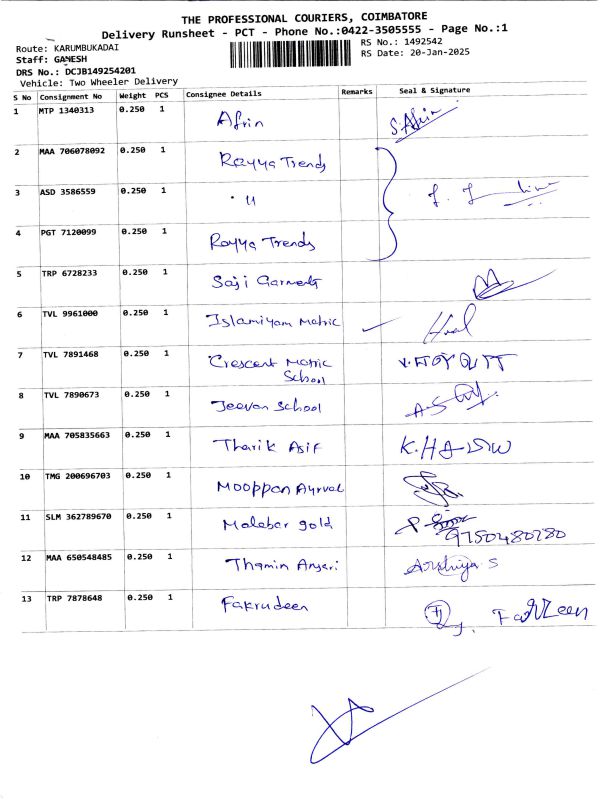 THE PROFESSIONAL COURIERS, COIMBATORE
Delivery Runsheet - PCT - Phone No.:0422-3505555 - Page No.:1
Route: KARUMBUKADAI RS No.: 1492542
Staff: GANESH RS Date: 20-Jan-2025
DRS No.: DCJB149254201
Vehicle: Two Wheeler Delivery
S No Consignment No Weight PCS Consignee Details Remarks Seal & Signature
1 MTP 1340313 0.250 1 Afrin S.Afrin
2 MAA 706078092 0.250 1 Rayya Trends
3 ASD 3586559 0.250 1 " 
4 PGT 7120099 0.250 1 Rayya Trends
5 TRP 6728233 0.250 1 Saji Garments
6 TVL 9961000 0.250 1 Islamiyam Matric ✓
7 TVL 7891468 0.250 1 Crescent Matric
School
8 TVL 7890673 0.250 1 Jeevan School
9 MAA 705835663 0.250 1 Tharik Asif
10 TMG 200696703 0.250 1 Mooppan Ayrval
11 SLM 362789670 0.250 1 Malabar gold
9750480780
12 MAA 650548485 0.250 1 Thamin Ansari Arshiya S
13 TRP 7878648 0.250 1 Fakrudeen